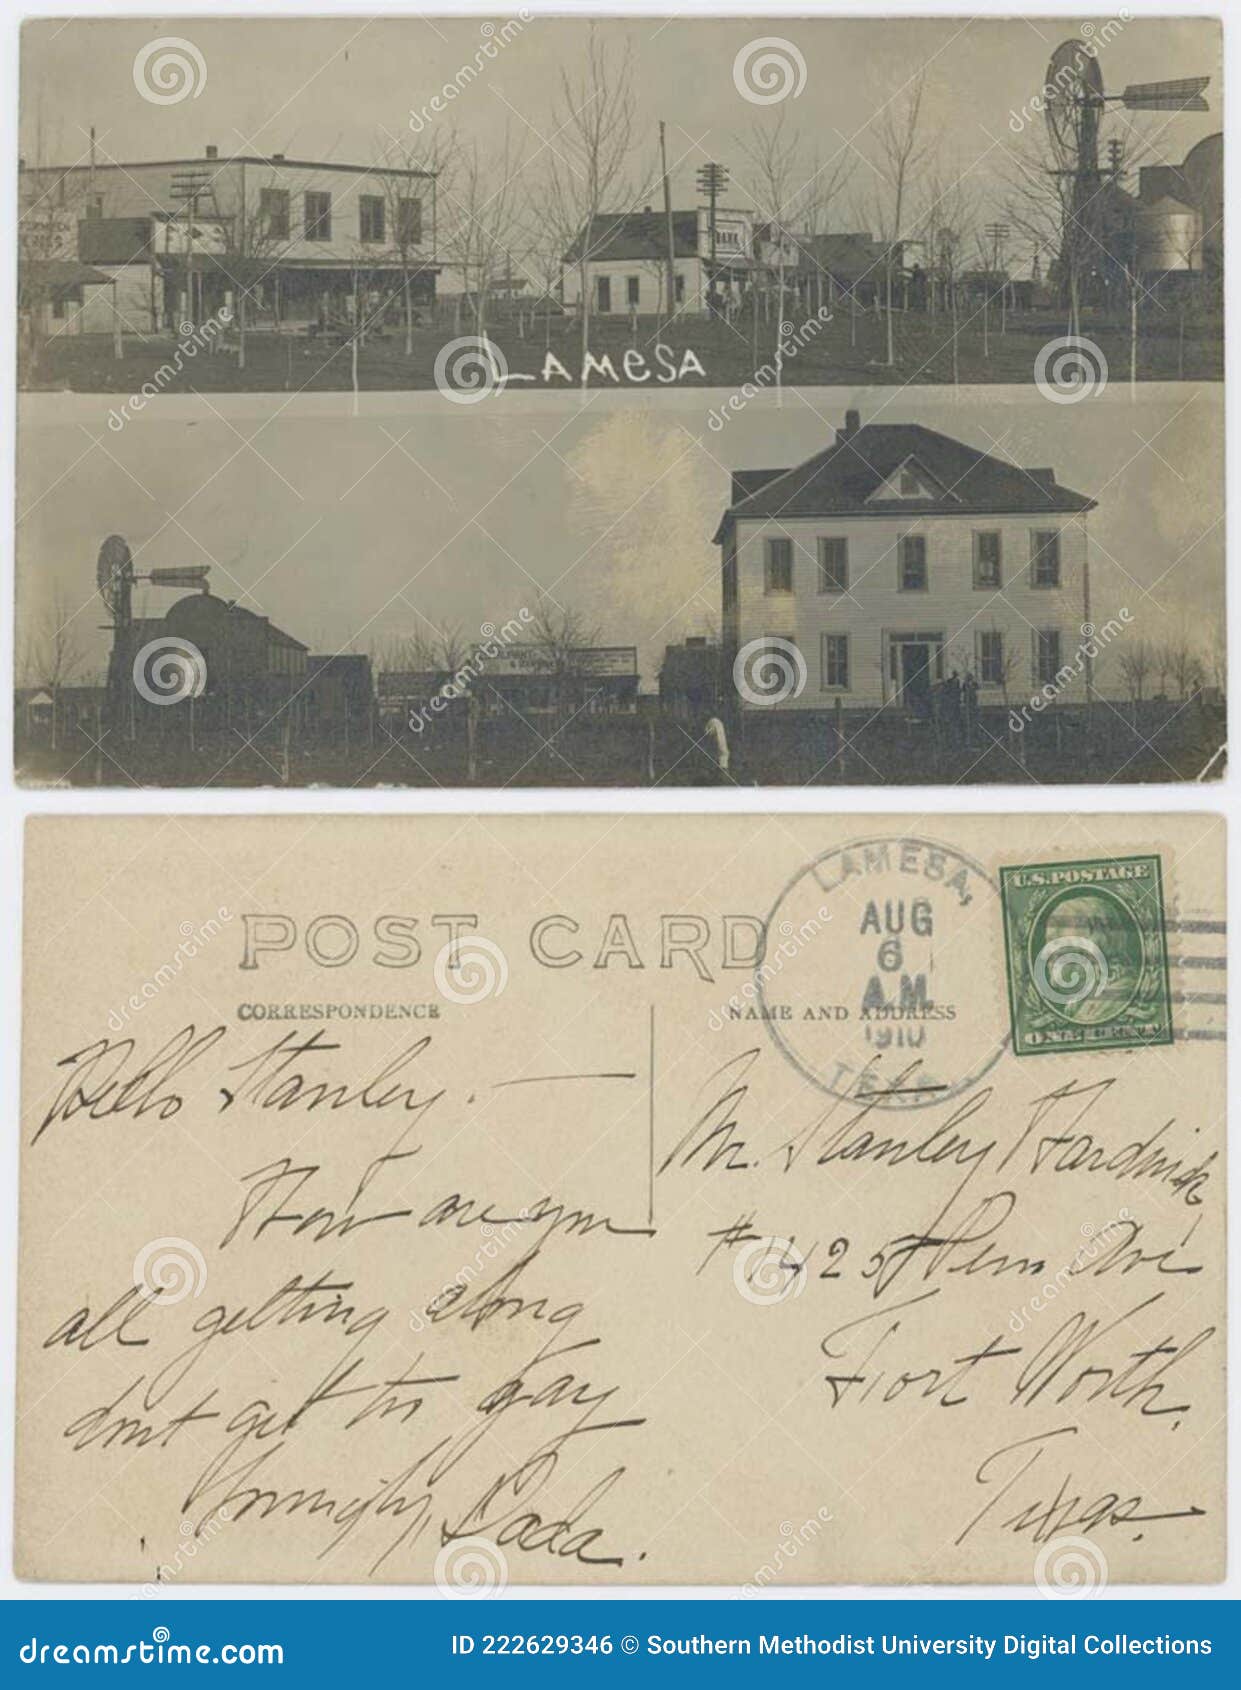 BANK
LAMESA
POST CARD
CORRESPONDENCE
NAME AND ADDRESS
LAMESA,
AUG
6
A.M.
1910
TEX
U.S. POSTAGE
ONE CENT
Hello Stanley. —
How are you
all getting along
dont get too gay
Dada.
Mr. Stanley Hardwick
#1425 Penn Ave
Fort Worth,
Texas.
dreamstime
dreamstime.com
ID 222629346 © Southern Methodist University Digital Collections